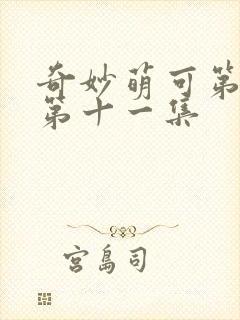 奇妙萌可第
第十一集
宫島司